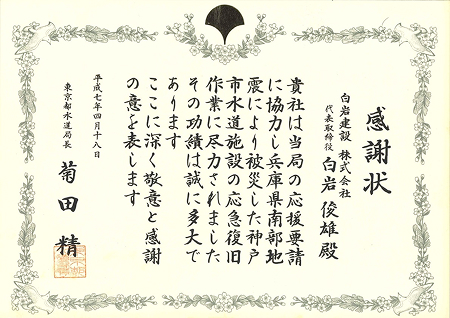 感謝状
白岩建設 株式会社
代表取締役 白岩 俊雄 殿
貴社は当局の応援要請
に協力し兵庫県南部地
震により被災した神戸
市水道施設の応急復旧
作業に尽力されました
その功績は誠に多大で
あります
ここに深く敬意と感謝
の意を表します
平成七年四月十八日
東京都水道局長 菊田 精